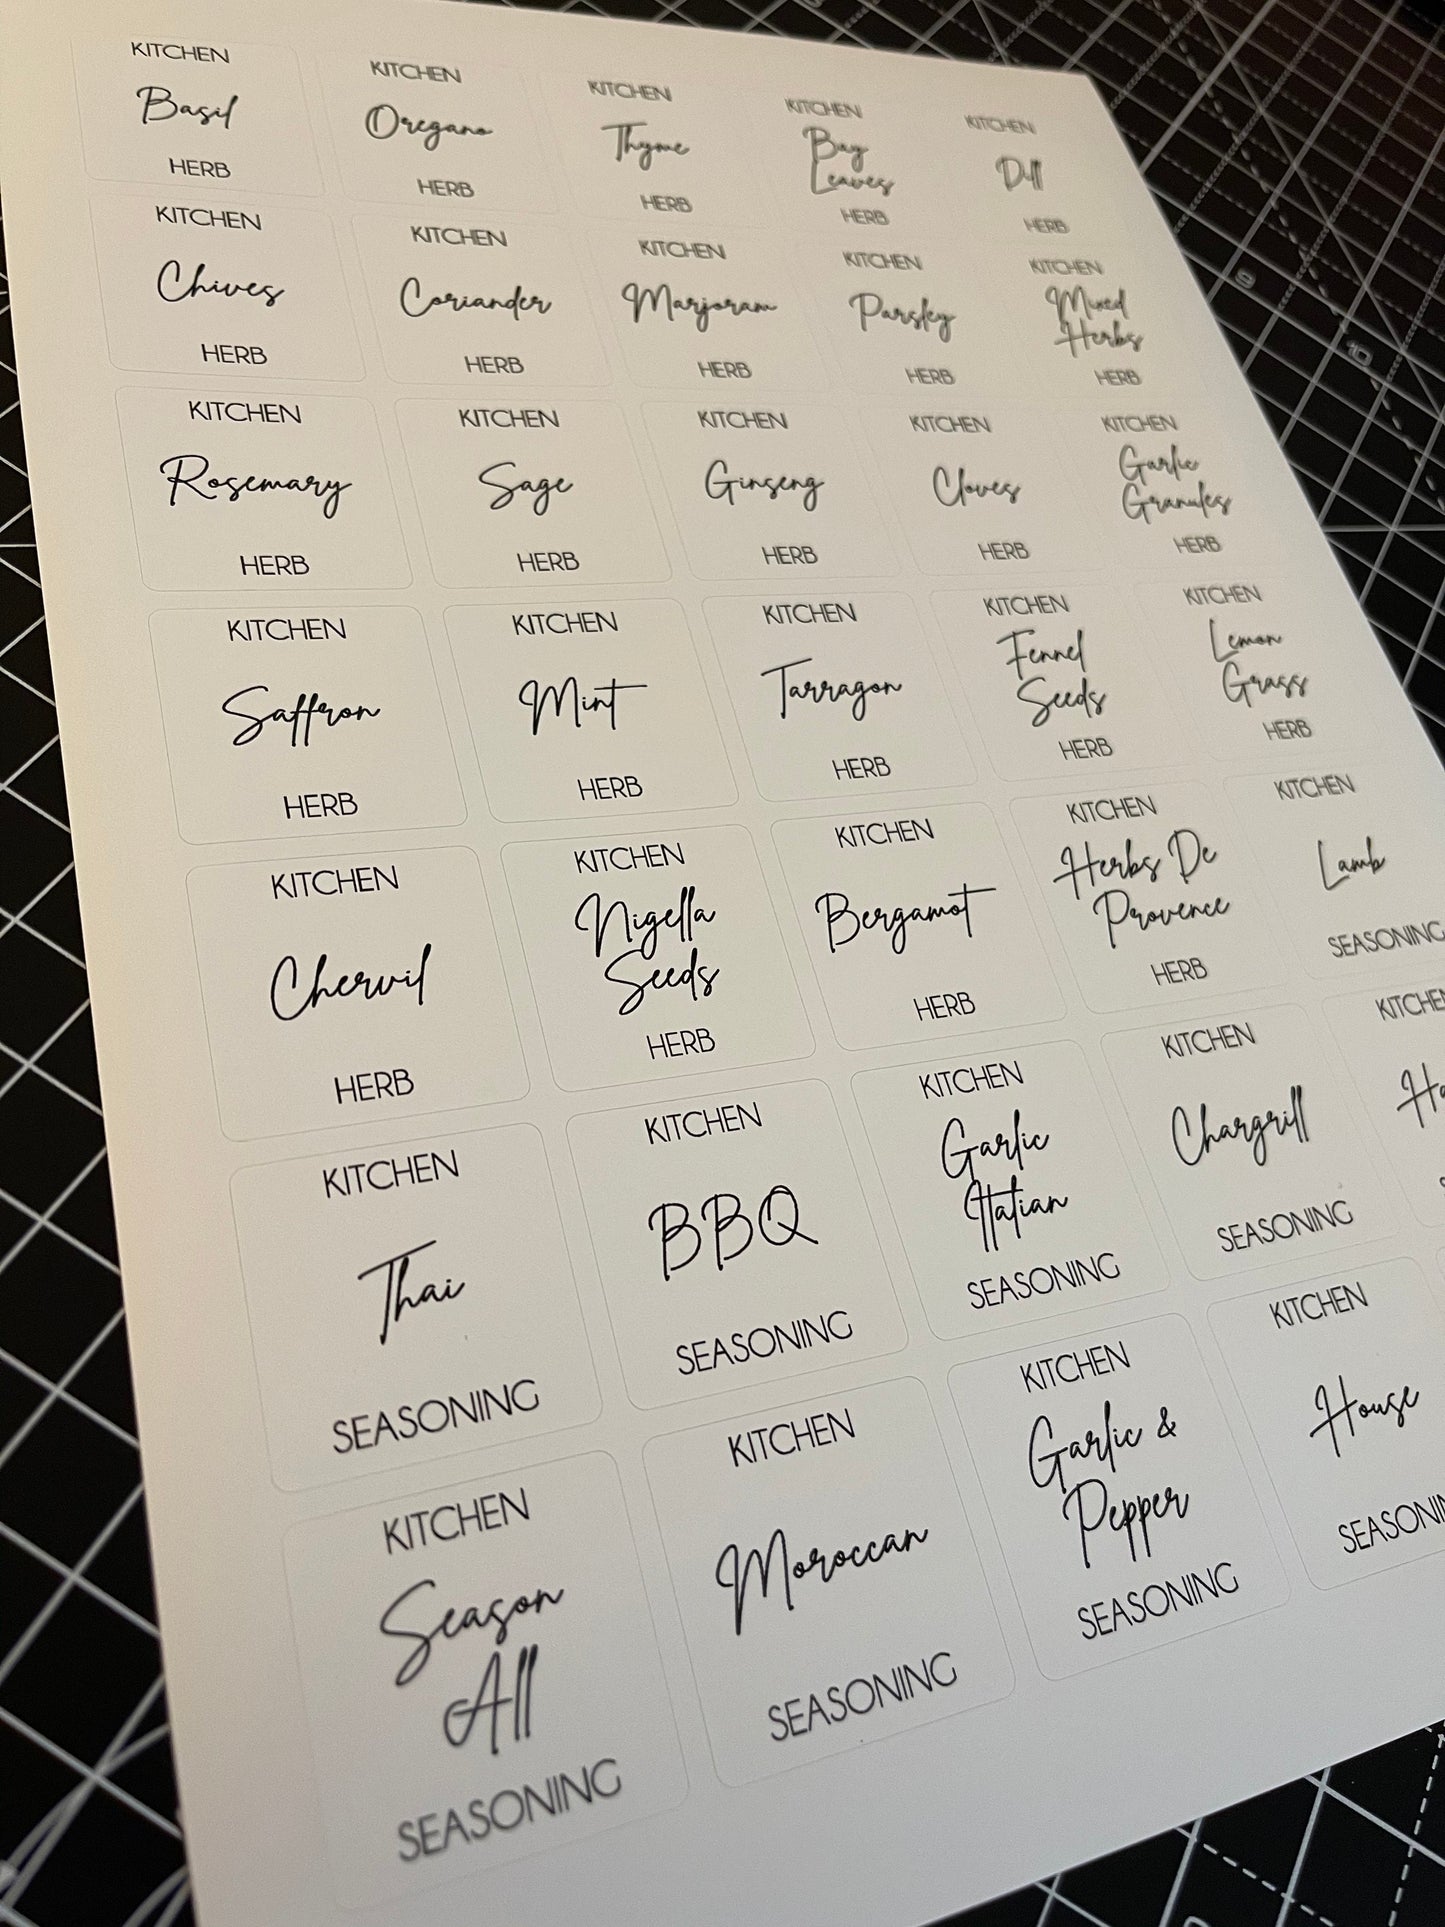 KITCHEN
Basil
HERB
KITCHEN
Oregano
HERB
KITCHEN
Thyme
HERB
KITCHEN
Bay
Leaves
HERB
KITCHEN
Dill
HERB
KITCHEN
Chives
HERB
KITCHEN
Coriander
HERB
KITCHEN
Marjoram
HERB
KITCHEN
Parsley
HERB
KITCHEN
Mixed
Herbs
HERB
KITCHEN
Rosemary
HERB
KITCHEN
Sage
HERB
KITCHEN
Ginseng
HERB
KITCHEN
Cloves
HERB
KITCHEN
Garlic
Granules
HERB
KITCHEN
Saffron
HERB
KITCHEN
Mint
HERB
KITCHEN
Tarragon
HERB
KITCHEN
Fennel
Seeds
HERB
KITCHEN
Lemon
Grass
HERB
KITCHEN
Chervil
HERB
KITCHEN
Nigella
Seeds
HERB
KITCHEN
Bergamot
HERB
KITCHEN
Herbs De
Provence
HERB
KITCHEN
Lamb
SEASONING
KITCHEN
Thai
SEASONING
KITCHEN
BBQ
SEASONING
KITCHEN
Garlic
Italian
SEASONING
KITCHEN
Chargrill
SEASONING
KITCHEN
KITCHEN
Season
All
SEASONING
KITCHEN
Moroccan
SEASONING
KITCHEN
Garlic &
Pepper
SEASONING
KITCHEN
House
SEASONING